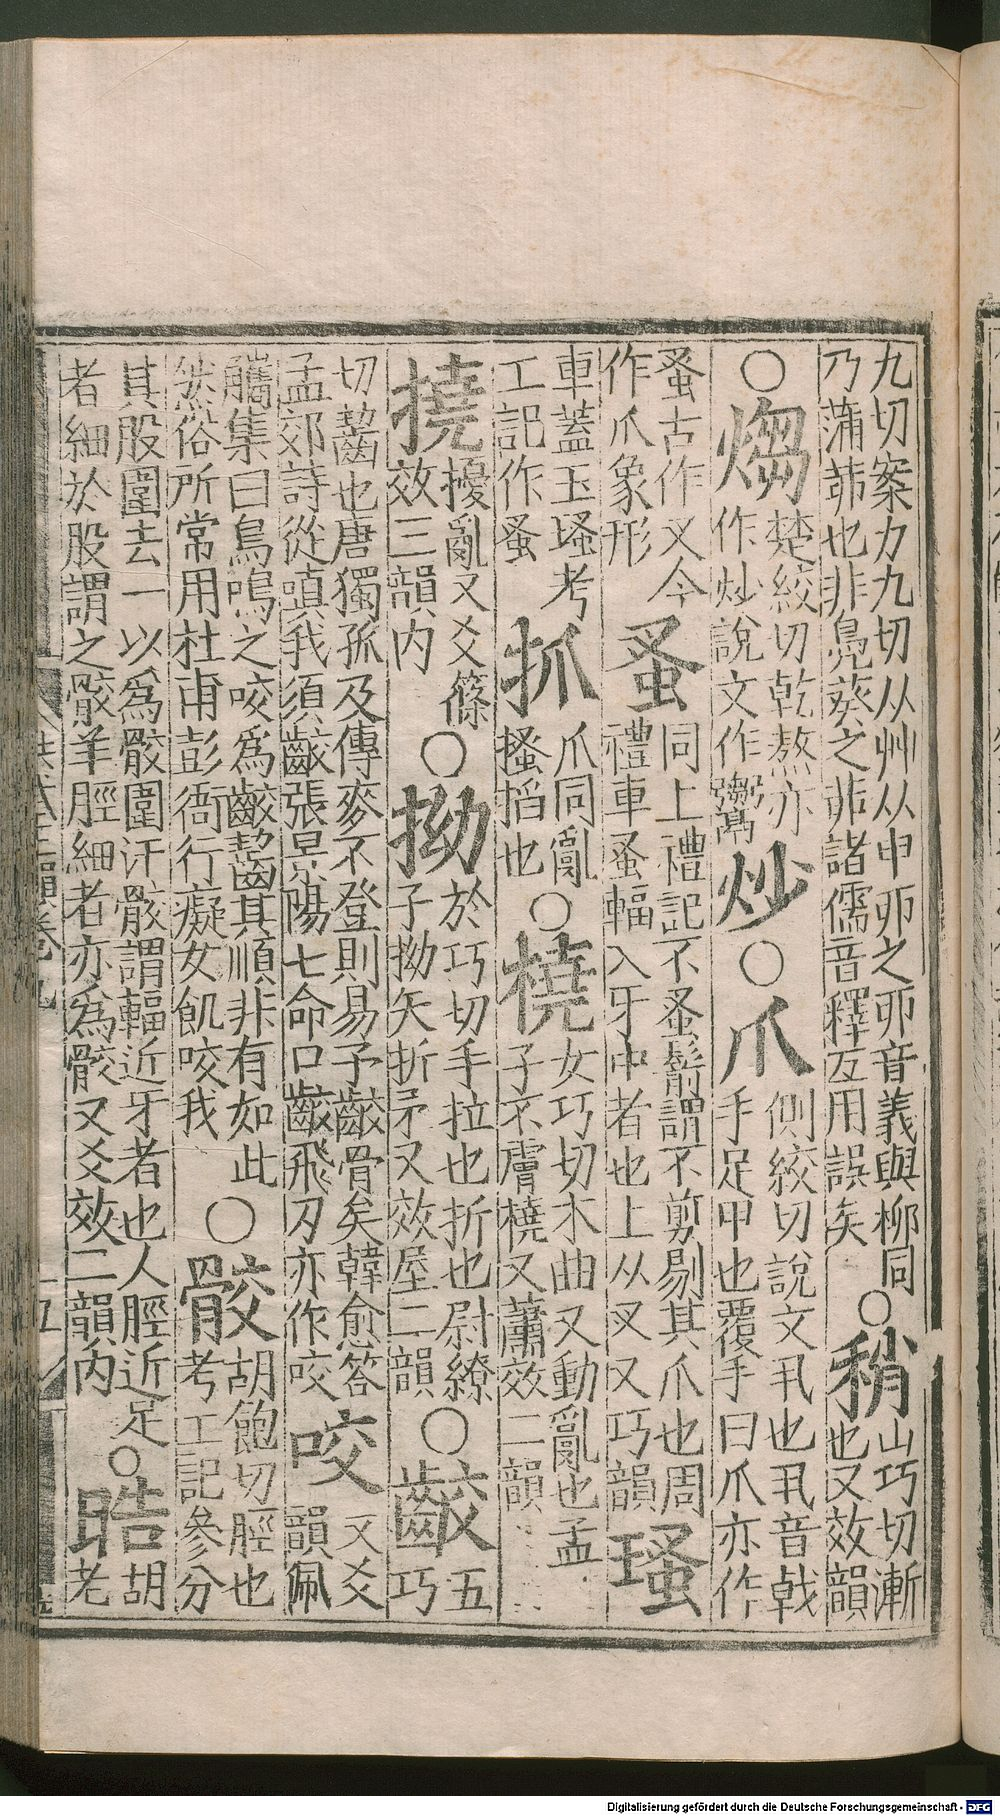 九切案力九切从艸从申丣之丣音義與柳同○稍山巧切漸
乃蒲茆也非鳧葵之茆諸儒音釋互用誤矣也又效韻
○煼楚絞切乾熬亦炒○爪側絞切說文丮也丮音戟
作炒說文作鬻手足甲也覆手曰爪亦作
蚤古作叉今蚤同上禮記不蚤鬋謂不剪剔其爪也周瑵
作爪象形禮車蚤輻入牙中者也上从叉又巧韻
車蓋玉瑵考抓爪同亂○橈女巧切木曲又動亂也孟
工記作蚤搔掐也子不膚橈又蕭效二韻
撓擾亂又爻篠○拗於巧切手拉也折也尉繚○齩五
效三韻內子拗矢折矛又效屋二韻巧
切齧也唐獨孤及傳麥不登則易子齩骨矣韓愈答咬又爻
孟郊詩從嗔我須齩張景陽七命口齩飛刃亦作咬韻佩
觿集曰鳥鳴之咬為齩齧其順非有如此○骹胡飽切脛也
然俗所常用杜甫彭衙行癡女飢咬我考工記參分
其股圍去一以為骹圍注骹謂輻近牙者也人脛近足○晧胡
者細於股謂之骹羊脛細者亦為骹又爻效二韻內老
Digitalisierung gefördert durch die Deutsche Forschungsgemeinschaft - DFG